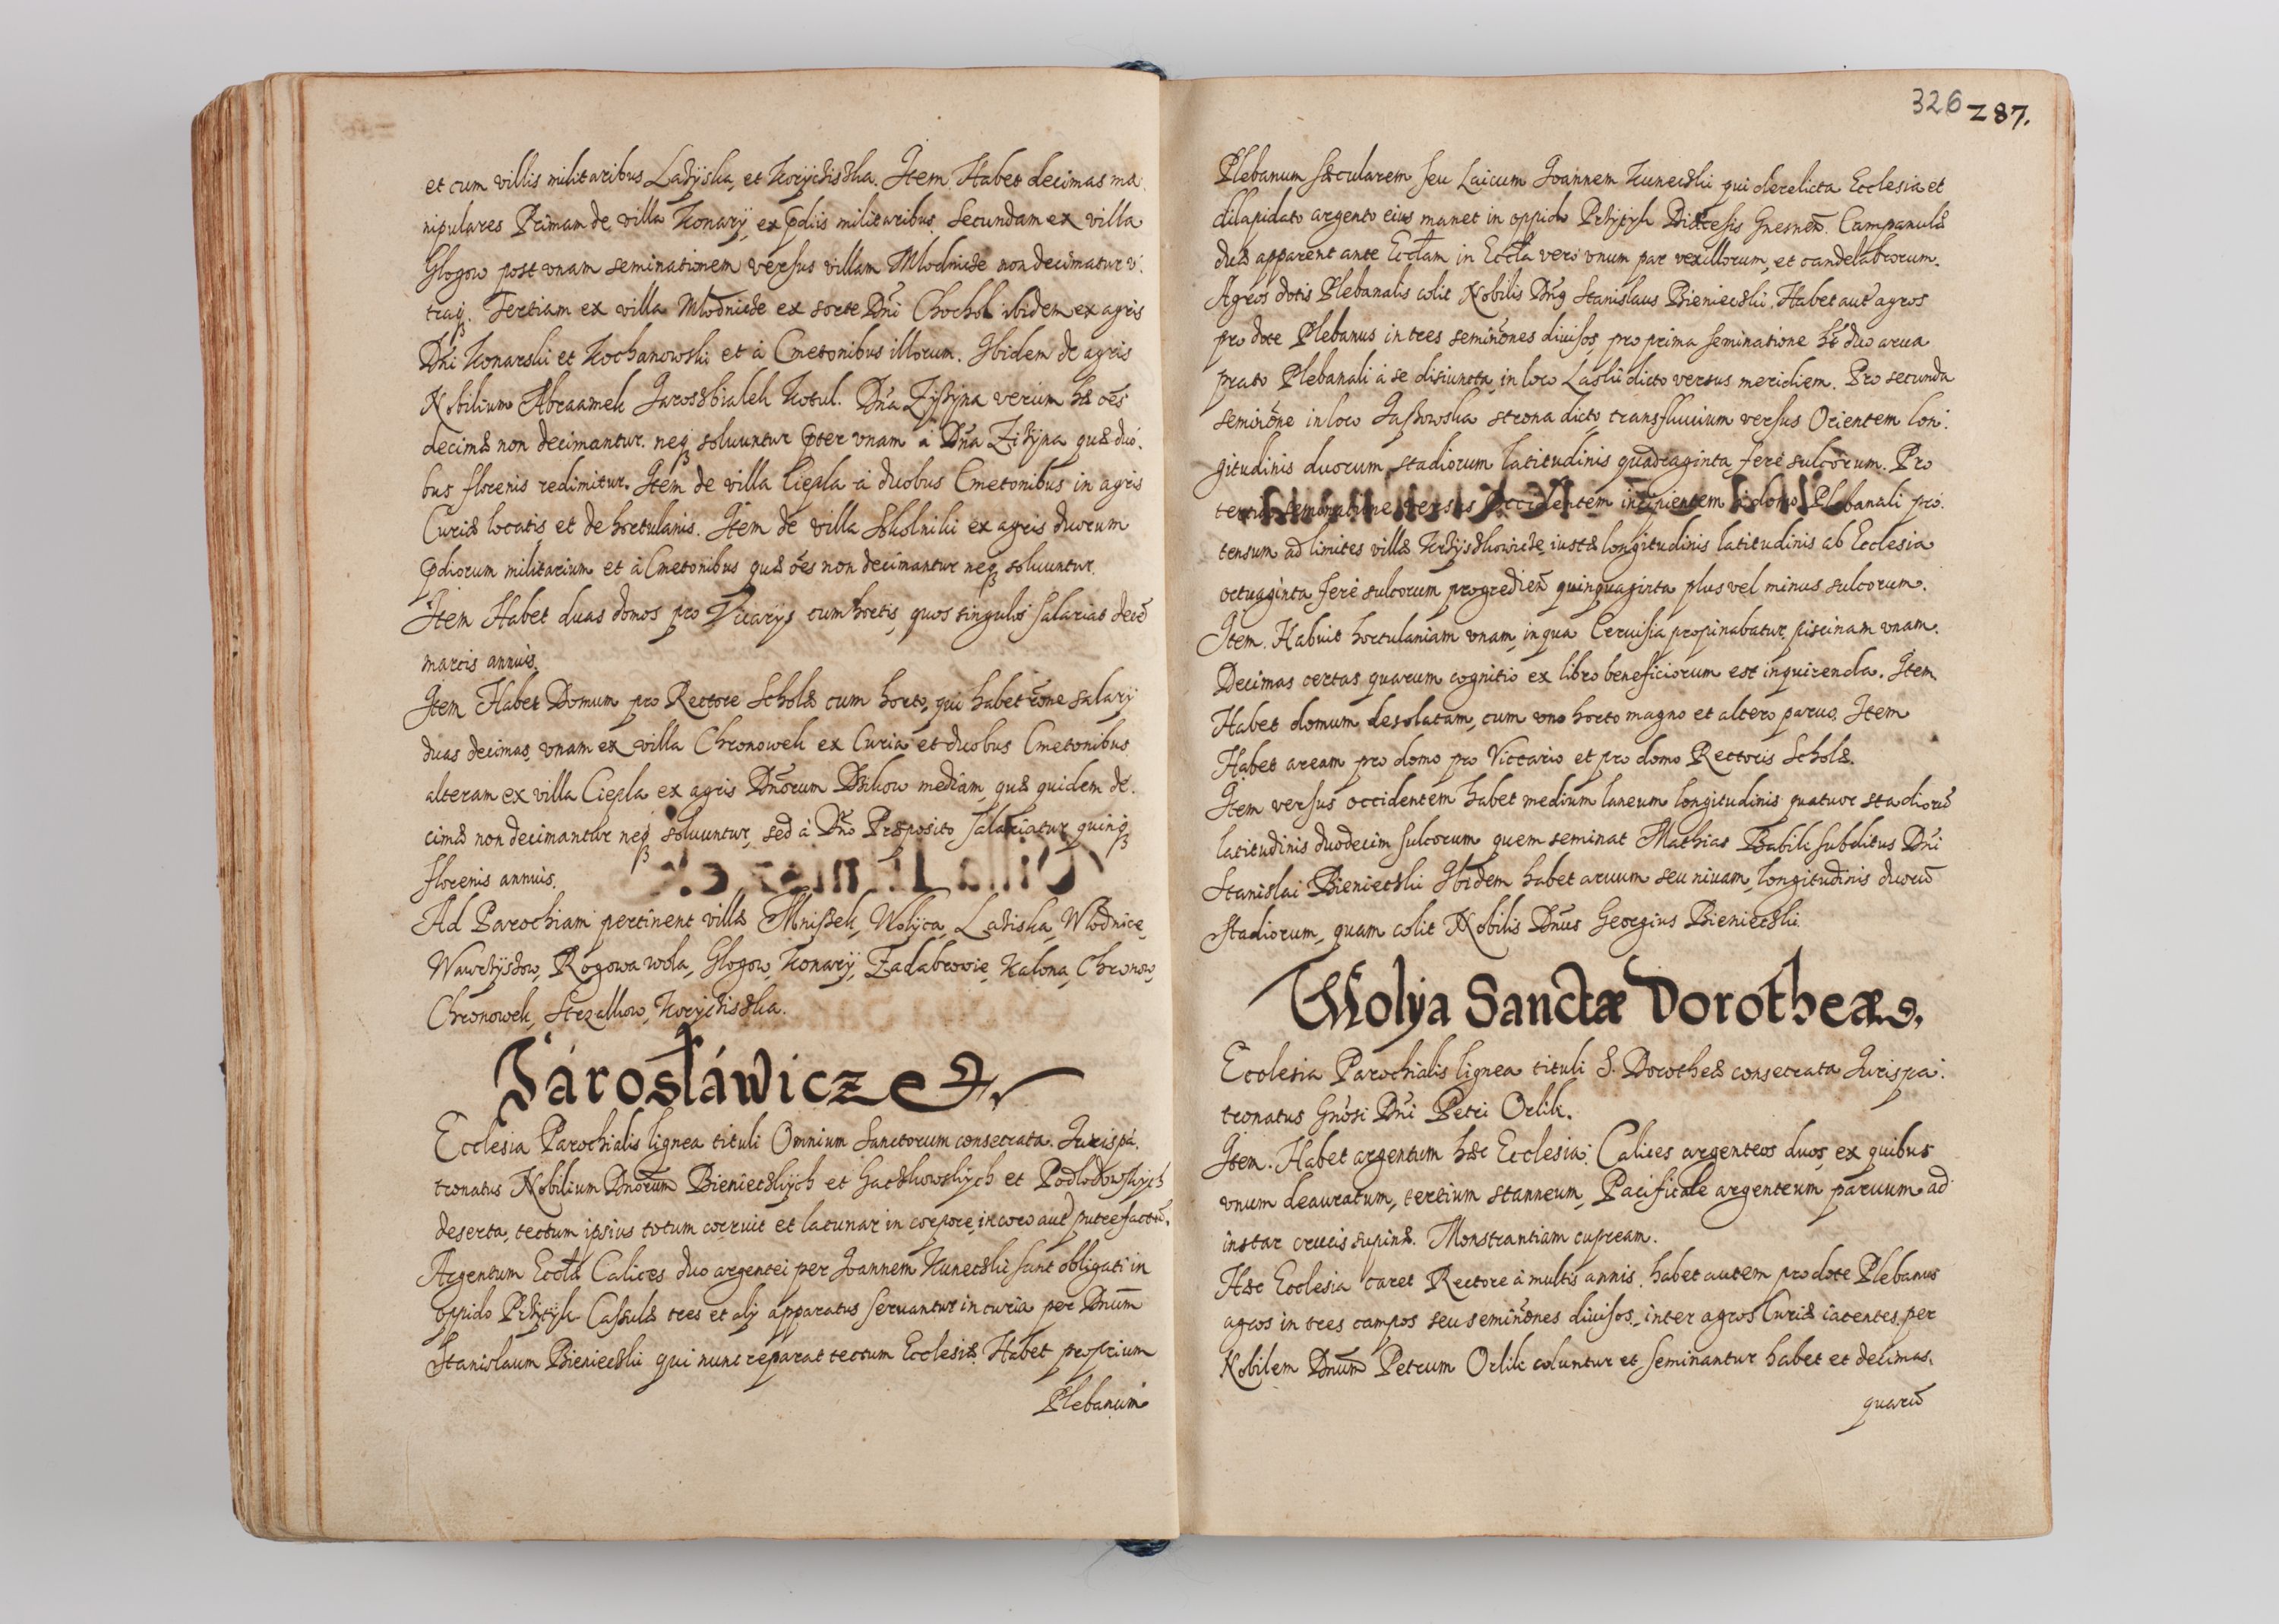 et cum villis militaribus Ladÿska, et Korÿciska. Item Habet decimas ma
nipulares Primam de villa Konarÿ, ex p̃diis militaribus. Secundam ex villa
Glogow post vnam seminationem versus villam Mlodnicze non decimatur v.
traq. Tertiam ex villa Mlodnicze ex sorte Dñi Chochol ibidem ex agris
Dñi Konarski et Kochanowski et à Cmetonibus illorum. Ibidem de agris
Nobilium Abraamek Jarosbialek Kotul. Dña verum hæ oẽs
decimæ non decimantur. neq soluuntur p̃ter vnam à Dña quæ duo.
bus florenis redimitur. Item de villa Ciepla à duobus Cmetonibus in agris
Curiæ locatis et de hortulanis. Item de villa Skolniki ex agris duorum
p̃diorum militarium et à Cmetonibus quæ oẽs non decimantur neq soluuntur.
Item Habet duas domos pro Vicarÿs cum hortis, quos singulos salariat decẽ
marcis annuis.
Item Habet Domum pro Rectore Scholæ cum horto, qui habet rõne salarÿ
duas decimas, vnam ex villa Chronowek ex Curia et duobus Cmetonibus
alteram ex villa Ciepla ex agris Dñorum mediam, quæ quidem de.
cimæ non decimantur neq soluuntur, sed à Dño Præposito salariatur quinq
florenis annuis.
Ad Parochiam pertinent villæ Mniszek, Wolÿca, Ladiska, Wlodnice,
Wawrzÿszow, Rogowa wola, Glogow, Konarÿ, Zadabrowie, Kalona, Chronow,
Chronowek, Strzalkow, Korÿciska.
Járosłáwicze.
Ecclesia Parochialis lignea tituli Omnium Sanctorum consecrata. Iurispa.
tronatus Nobilium Dñorum Bienieckÿch et Gaczkowskÿch et Podlodowskÿch
deserta, tectum ipsius totum corruit et lacunar in corpore, in coro aut putrefactũ.
Argentum Eccłæ Calices duo argentei per Joannem Kunecski sunt obligati in
oppido Prźÿtÿk Casulæ tres et alÿ apparatus seruantur in curia per Dnum
Stanislaum Bieniecski qui nunc reparat tectum Ecclesiæ. Habet proprium
Plebanum
326 287.
Plebanum sæcularem seu Laicum Joannem Kunecski qui derelicta Ecclesia et
dilapidato argento eius manet in oppido Prźÿtÿk Diæcesis Gnesneñ. Campanulæ
duæ apparent ante Eccłam in Eccła vero vnum par vexillorum, et candelabrorum.
Agros dotis Plebanalis colit Nobilis Dñg Stanislaus Bieniecski. Habet aut agros
pro dote Plebanus in tres seminẽones diuisos, pro prima seminatione hẽt duo arua
prato Plebanali à se disiuncta, in loco Laski dicto versus meridiem. Pro secunda
seminẽone in loco strona dicto, transfluuium versus Orientem lon.
gitudinis duorum stadiorum latitudinis quadraginta ferè sulcorum. Pro
tertia seminatione versus Occidentem incipientem à domo Plebanali pro.
tensum ad limites villæ iustæ longitudinis latitudinis ab Ecclesia
octuaginta ferè sulcorum progredieñ quinquaginta plus vel minus sulcorum.
Item. Habuit hortulaniam vnam, in qua Ceruisia propinabatur, piscinam vnam.
Decimas certas quarum cognitio ex libro beneficiorum est inquirenda. Item
Habet domum desolatam, cum vno horto magno et altero paruo. Item
Habet aream pro domo pro Viccario et pro domo Rectoris Scholæ.
Item versus occidentem habet medium laneum longitudinis quatuor stadiorũ
latitudinis duodecim sulcorum quem seminat Mathias Babik subditus Dñi
Stanislai Bieniecski Ibidem habet aruum seu niuam, longitudinis duorũ
Stadiorum, quam colit Nobilis Dñus Georgius Bieniecski.
Wolÿa Sanctæ Dorotheæ.
Ecclesia Parochialis lignea tituli S. Dorotheæ consecrata Iurispa.
tronatus Gñosi Dñi Petri Orlik.
Item. Habet argentum hæc Ecclesia: Calices argenteos duos, ex quibus
vnum deauratum, tertium stanneum, Pacificale argenteum paruum ad
instar crucis supinæ. Monstrantiam cupream.
Hæc Ecclesia caret Rectore à multis annis. habet autem pro dote Plebanus
agros in tres campos seu seminẽones diuisos, inter agros Curiæ iacentes, per
Nobilem Dnum Petrum Orlik coluntur et seminantur habet et decimas.
quarũ